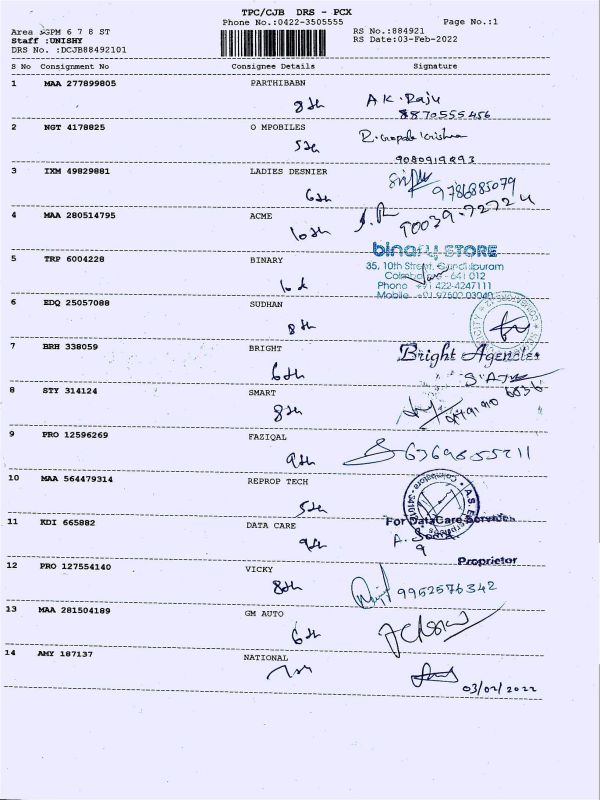 TPC/CJB DRS - PCX
Phone No.:0422-3505555 Page No.:1
Area :GPM 6 7 8 ST RS No.:884921
Staff :UNISHY RS Date:03-Feb-2022
DRS No. :DCJB88492101
S No Consignment No Consignee Details Signature
1 MAA 277899805 PARTHIBABN
8th A K. Raju
8870555456
2 NGT 4178825 O MPOBILES
5th R. Gopala Krishna
9080919893
3 IXM 49829881 LADIES DESNIER
6th 9786885079
4 MAA 280514795 ACME
10th 90039-72724
5 TRP 6004228 BINARY
binary STORE
35, 10th Street, Gandhipuram
Coimbatore - 641 012
Phone +91 422-4247111
Mobile +91 97502 03040
6 EDQ 25057088 SUDHAN
8th
7 BRH 338059 BRIGHT
6th Bright Agencies
8 STY 314124 SMART
8th
9 PRO 12596269 FAZIQAL
9th
10 MAA 564479314 REPROP TECH
5th
11 KDI 665882 DATA CARE
9th For DataCare Services
Proprietor
12 PRO 127554140 VICKY
8th 9952576342
13 MAA 281504189 GM AUTO
6th
14 AMY 187137 NATIONAL
03/02/2022